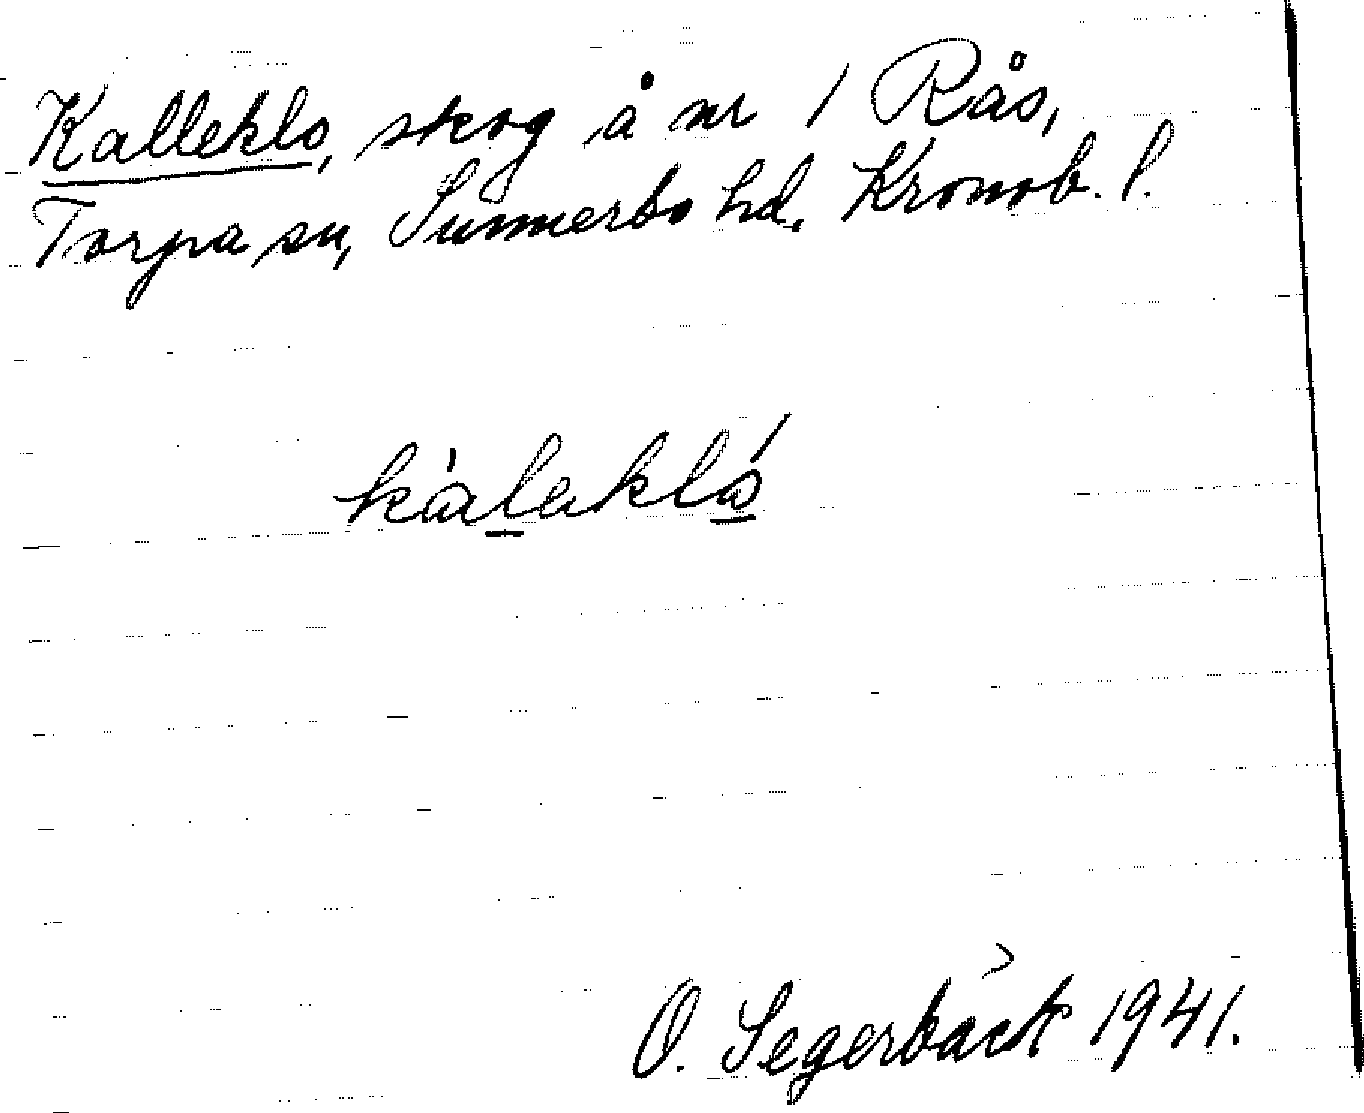 Kalleklo, skog å nr 1 Rås,
Torpa sn, Sunnerbo hd. Kronob. l.
kàlekló
O. Segerbäck 1941.